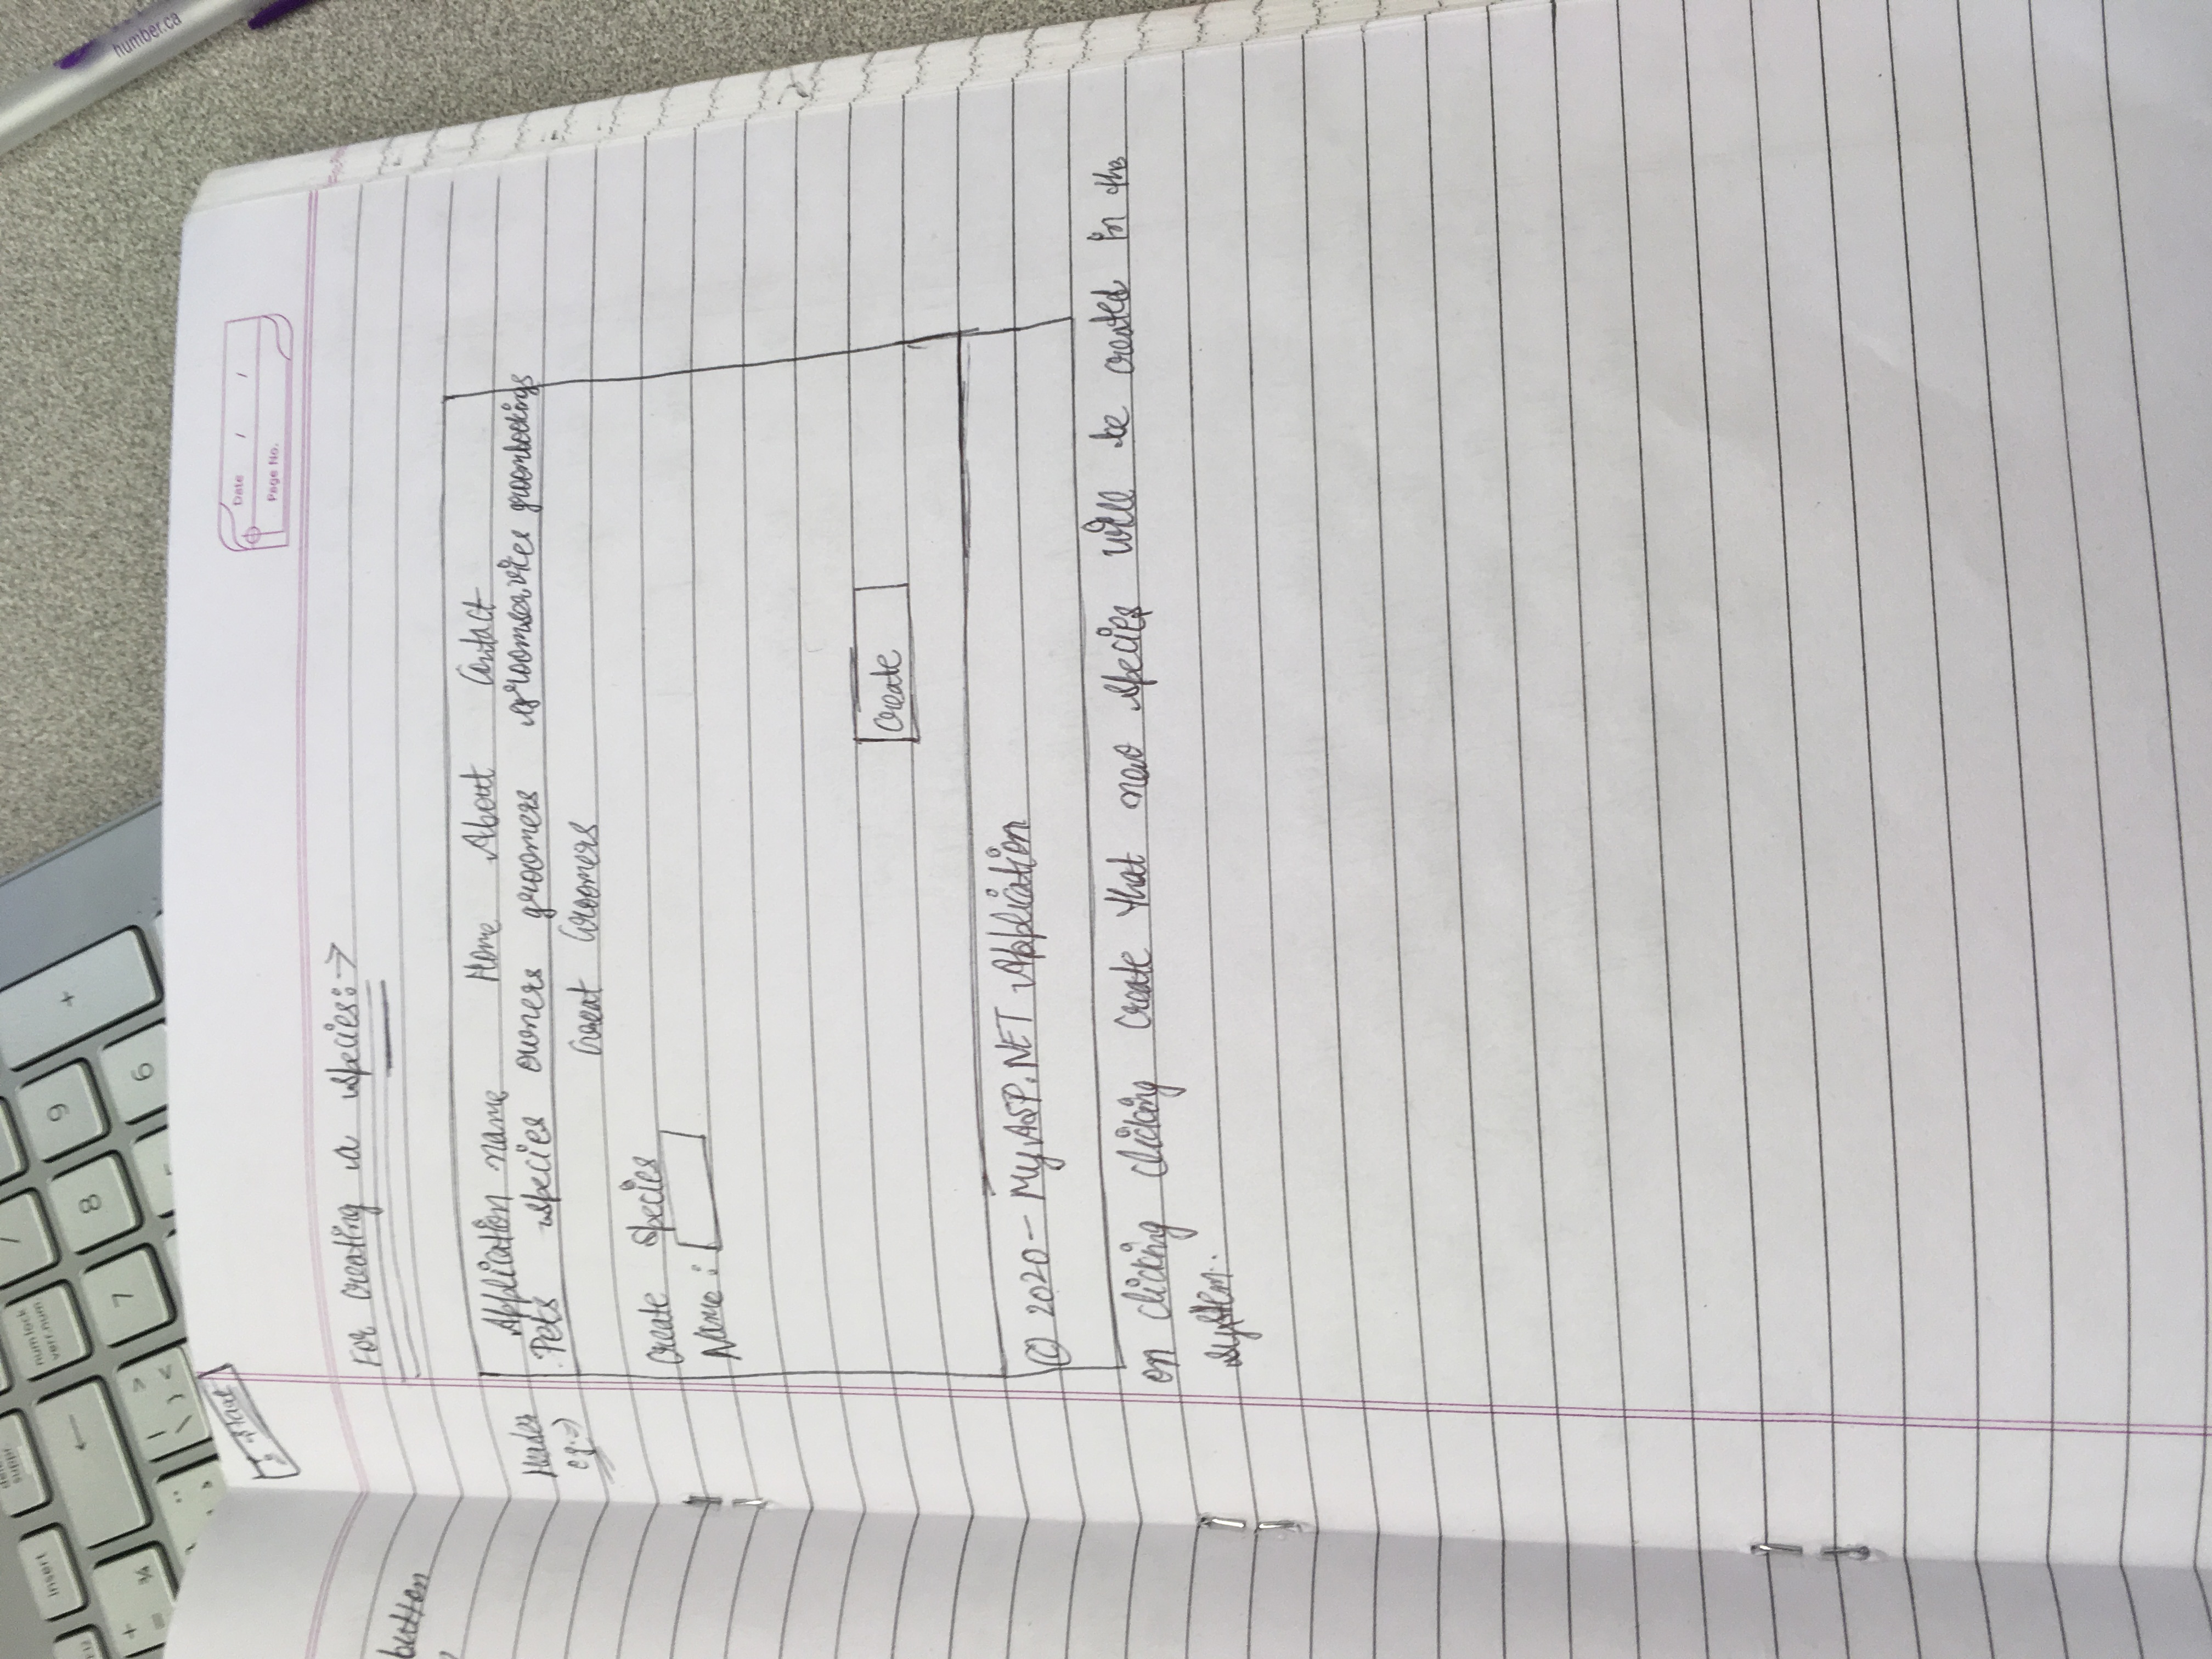 insert
suppr.
num lock
verr.num.
/
←
7
8
9
+
6
+
=
¾
humber.ca
start
Date / /
Page No.
button
For creating a species:->
Header
eg:->
Application name Home About Contact
Pets species owners groomers groomservices groombookings
Great Groomers
Create Species
Name :
Create
© 2020 - My ASP.NET Application
on clicking clicking create that new species will be created in the
system.